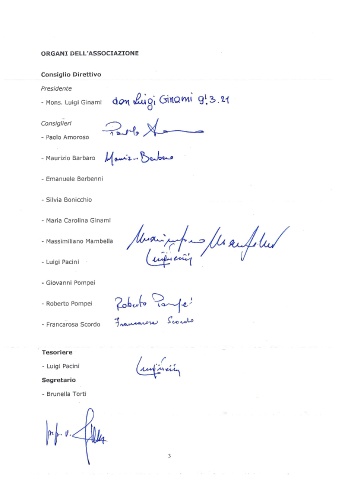 ORGANI DELL'ASSOCIAZIONE
Consiglio Direttivo
Presidente
- Mons. Luigi Ginami don Luigi Ginami 9.3.21
Consiglieri
- Paolo Amoroso
- Maurizio Barbaro Maurizio Barbaro
- Emanuele Berbenni
- Silvia Bonicchio
- Maria Carolina Ginami
- Massimiliano Mambella
- Luigi Pacini
- Giovanni Pompei
- Roberto Pompei Roberto Pompei
- Francarosa Scordo Francarosa Scordo
Tesoriere
- Luigi Pacini
Segretario
- Brunella Torti
3